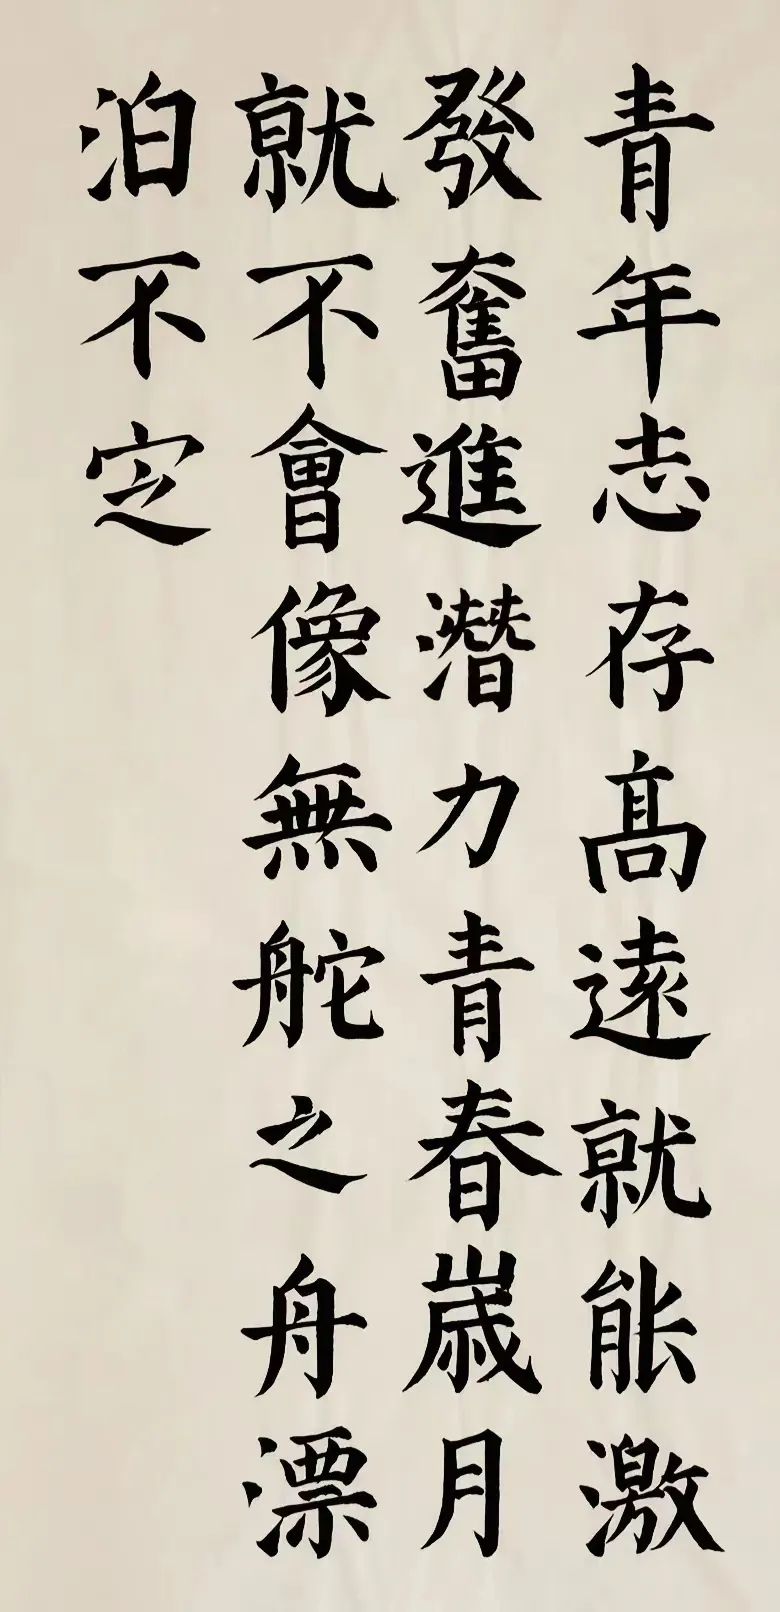 青年志存高遠就能激
發奮進潛力青春歲月
就不會像無舵之舟漂
泊不定